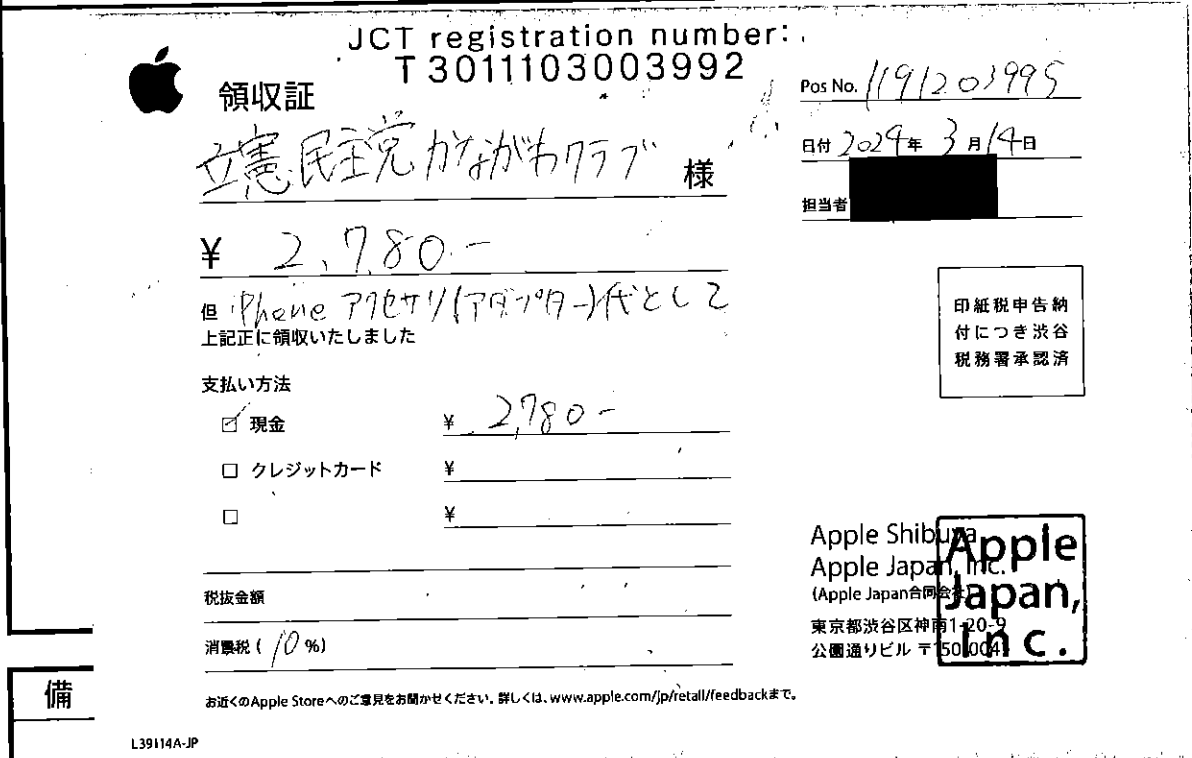 JCT registration number:
T3011103003992
領収証
Pos No. 1191203995
立憲民主党かながわクラブ 様
日付 2024年 3月 14日
担当者
¥ 2,780.-
但 iPhone アクセサリ(アダプター)代として
上記正に領収いたしました
印紙税申告納
付につき渋谷
税務署承認済
支払い方法
☑ 現金 ¥ 2,780-
□ クレジットカード ¥
□ ¥
Apple Shibuya
Apple Japan, Inc.
(Apple Japan合同会社)
東京都渋谷区神南1-20-9
公園通りビル 〒150-0041
Apple
Japan,
Inc.
税抜金額
消費税 ( 10 %)
お近くのApple Storeへのご意見をお聞かせください。詳しくは、www.apple.com/jp/retail/feedbackまで。
備
L39114A-JP